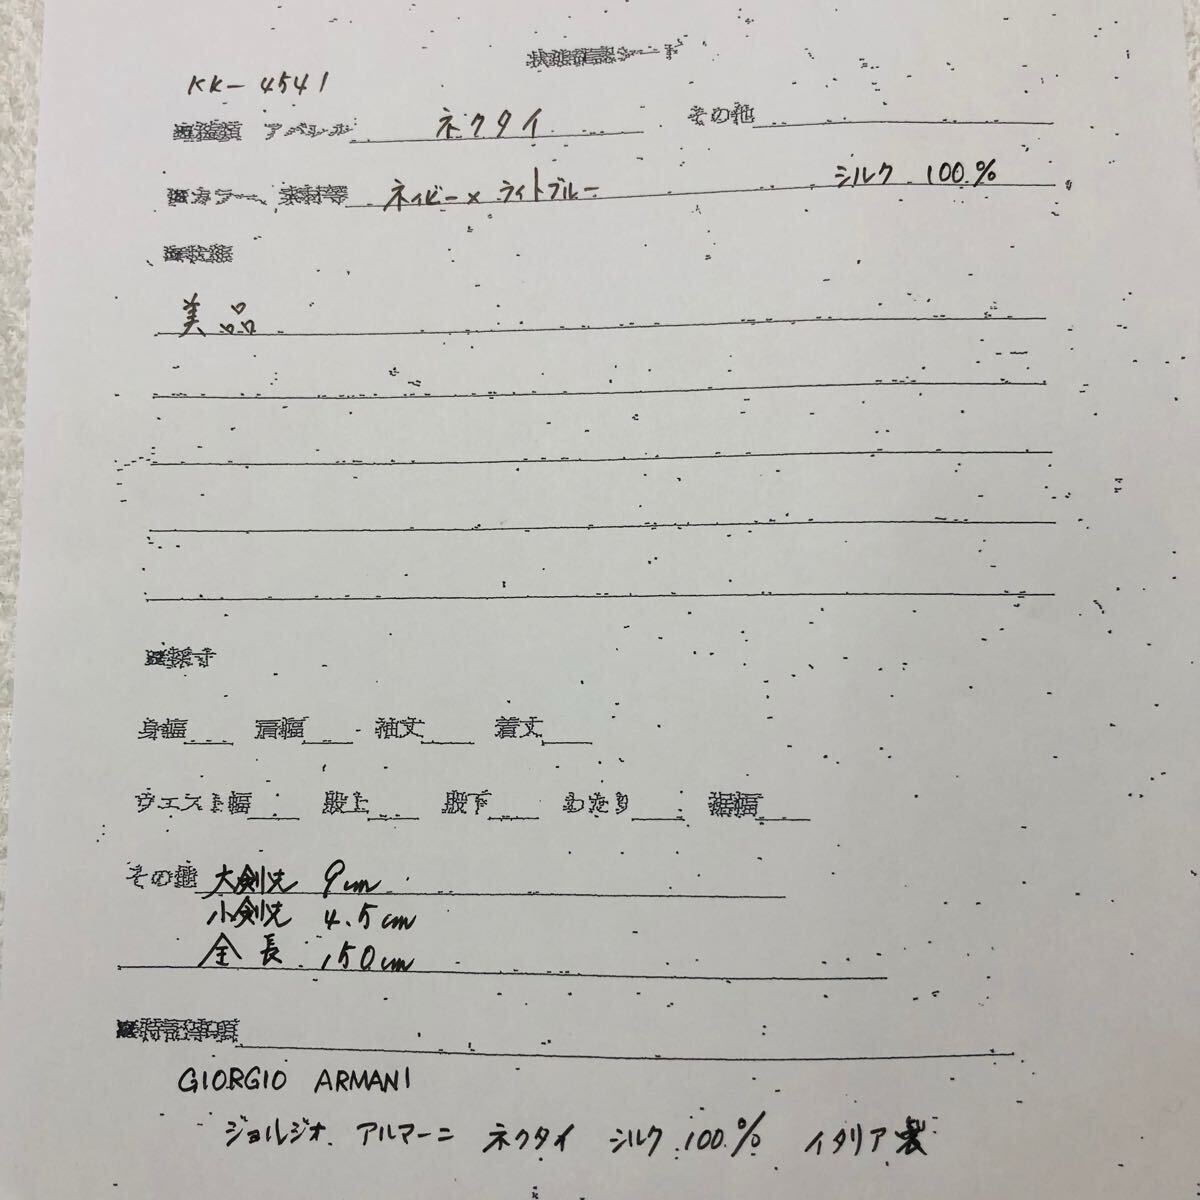 状態確認シート
KK-4541
■種類 アパレル ネクタイ その他
■カラー、素材等 ネイビー×ライトブルー シルク 100.%
■状態
美品
■採寸
身幅 肩幅 袖丈 着丈
ウエスト幅 股上 股下 わたり 裾幅
その他 大剣先 9cm
小剣先 4.5cm
全長 150cm
■特記事項
GIORGIO ARMANI
ジョルジオ アルマーニ ネクタイ シルク 100.% イタリア製